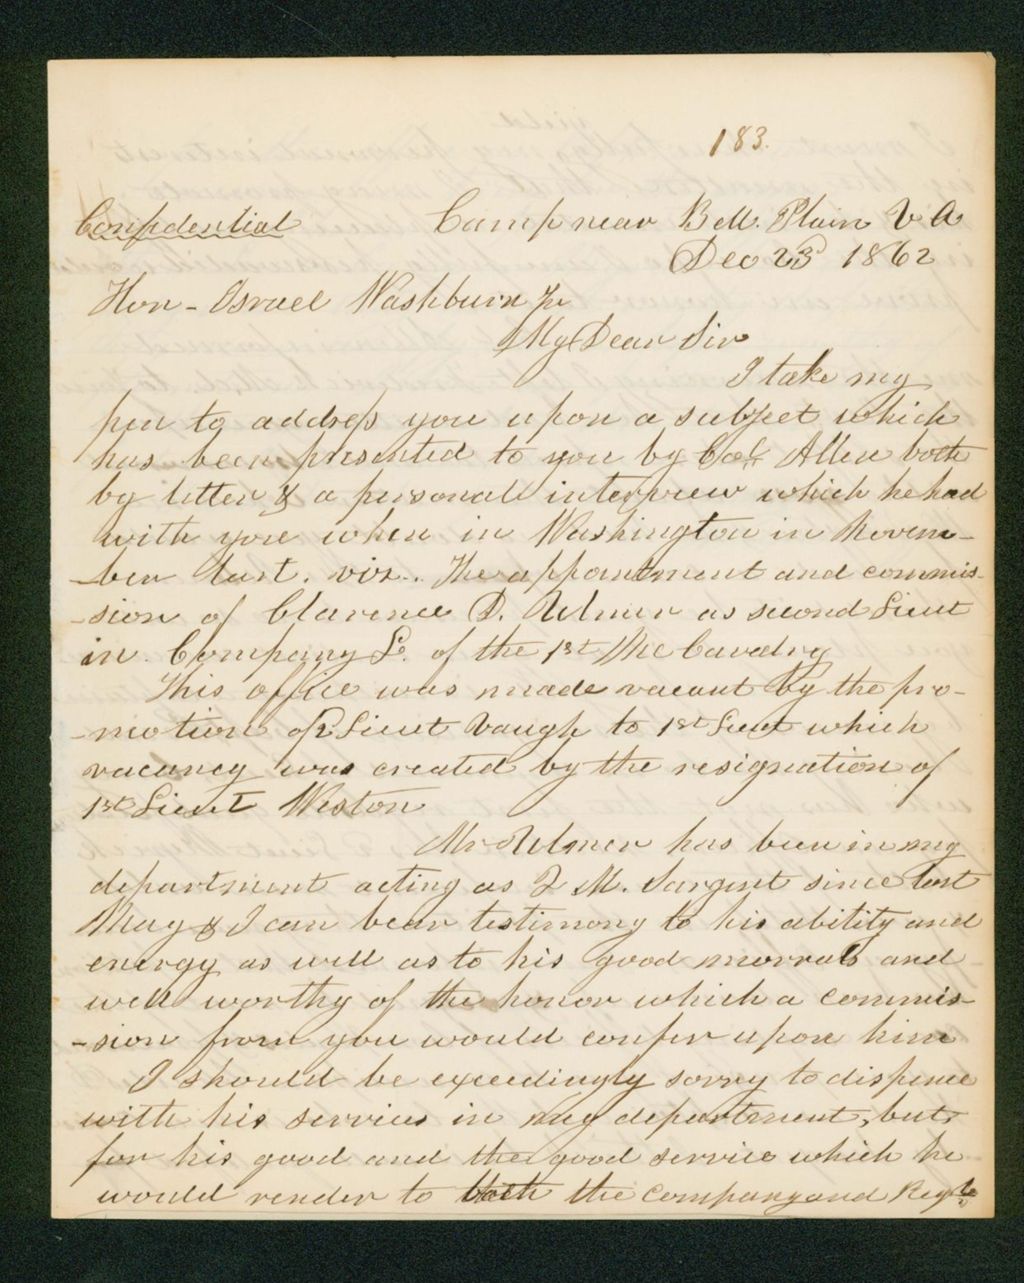 183.
Confidential Camp near Bell. Plain V A
Dec 23d 1862
Hon - Israel Washburn Jr
My Dear Sir
I take my
pen to address you upon a subject which
has been presented to you by Col Allen both
by letter & a personal interview which he had
with you when in Washington in Novem-
-ber last. viz.. The appointment and commis-
-sion of Clarence D. Ulmer as second Lieut
in Company L. of the 1st Me Cavalry
This office was made vacant by the pro-
-motion of 2 Lieut Vaugh to 1st Lieut which
vacancy was created by the resignation of
1st Lieut Weston
Mr Ulmer has been in my
department acting as Q M. Sargent since last
May & I can bear testimony to his ability and
energy as well as to his good morrals and
well worthy of the honor which a commis-
-sion from you would confer upon him
I should be exceedingly sorry to dispence
with his services in my department, but
for his good and the good service which he
would render to both the company and Regt.